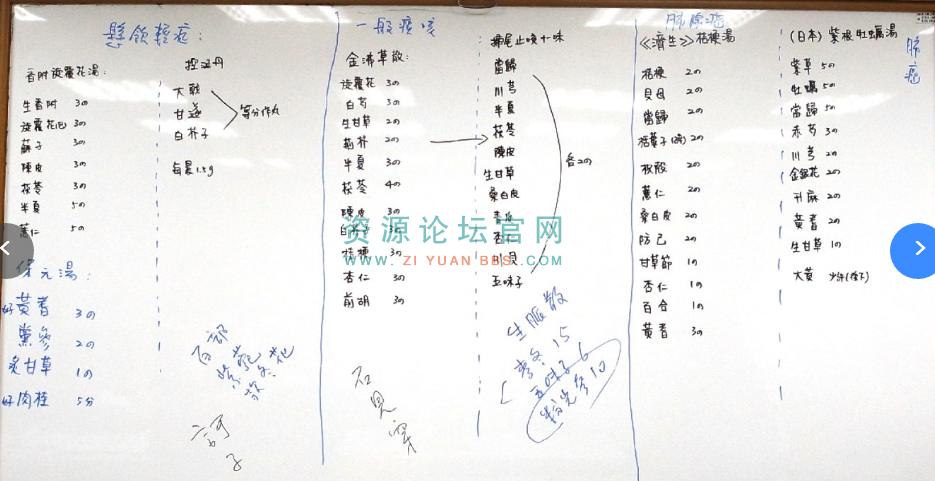 懸飲輕症:
香附旋覆花湯:
生香附 3の
旋覆花包 3の
蘇子 3の
陳皮 3の
茯苓 3の
半夏 5の
薏仁 5の
控涎丹
大戟
甘遂
白芥子
等分作丸
每晨1.5g
保元湯:
好黃耆 3の
黨參 2の
炙甘草 1の
好肉桂 5分
百部
訶子
一般痰咳
金沸草散:
旋覆花 3の
白芍 3の
生甘草 2の
荊芥 2の
半夏 3の
茯苓 4の
陳皮 3の
白芥子 3の
桔梗 3の
杏仁 3の
前胡 3の
石見穿
掃尾止咳十味
當歸
川芎
半夏
茯苓
陳皮
生甘草
桑白皮
青皮
杏仁
川貝
五味子
各2の
生脈散
麥冬 15
五味子 6
粉光參 10
《濟生》桔梗湯
桔梗 2の
貝母 2の
當歸 2の
栝蔞子 2の
枳殼 2の
薏仁 2の
桑白皮 2の
防己 2の
甘草節 1の
杏仁 1の
百合 1の
黃耆 3の
(日本) 紫根牡蠣湯
肺癌
紫草 5の
牡蠣 5の
當歸 5の
赤芍 3の
川芎 2の
金銀花 2の
升麻 2の
黃耆 2の
生甘草 1の
大黃 少許(後下)
资源论坛官网
WWW.ZIYUANBBS.COM